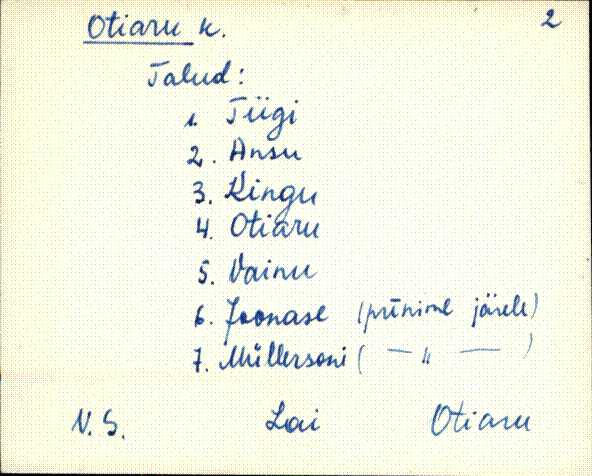 Otiaru k. 2
Talud:
1. Tiigi
2. Ansu
3. Kingu
4. Otiaru
5. Vainu
6. Joonase (priinime järele)
7. Müllersoni ( — „ — )
N. S. Lai Otiaru